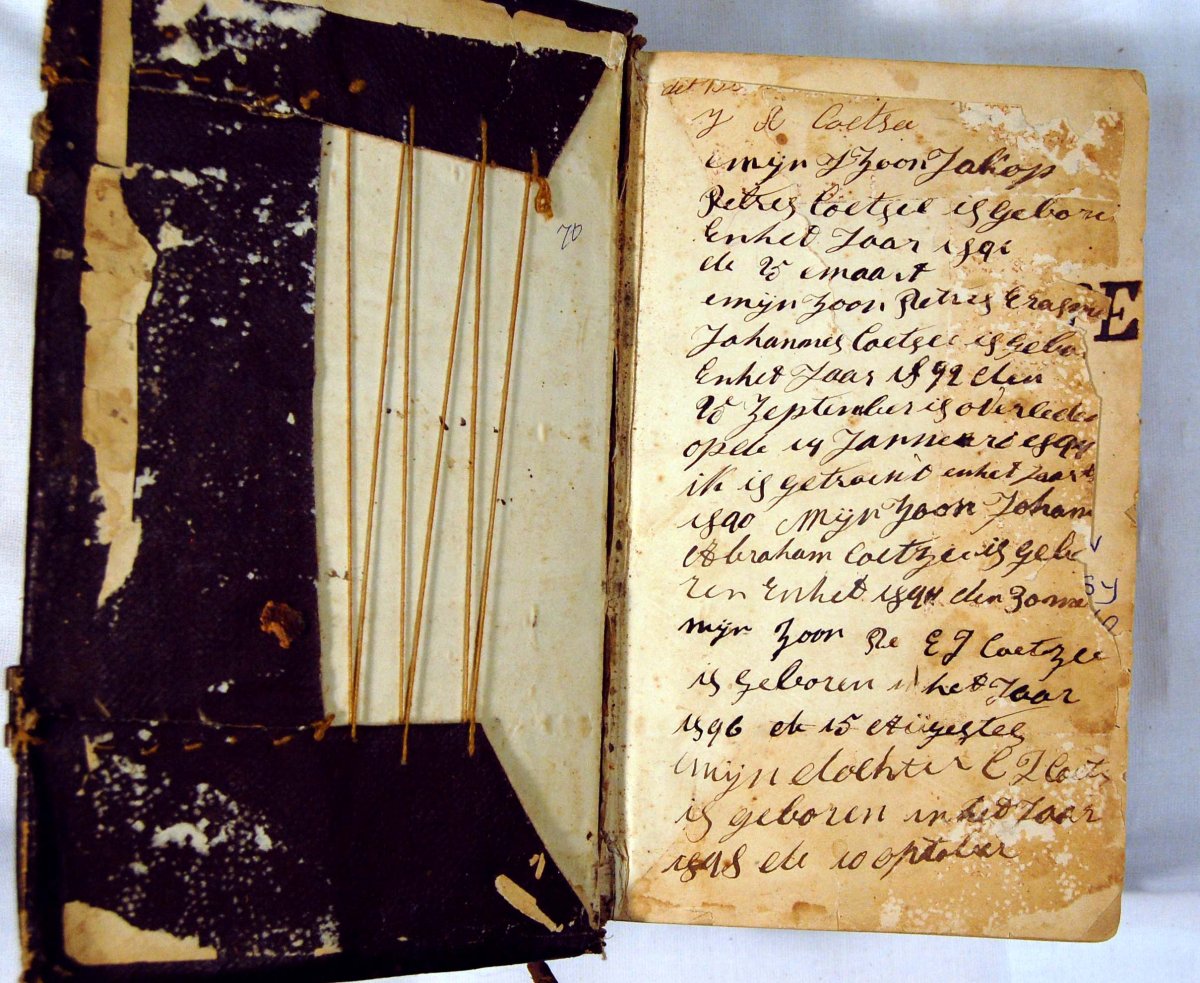 70
dit
J A Coetsee
mijn J Zoon Jakop
Petrus Coetsee is gebore
Enhet Jaar 1891
de 25 maart
mijn Zoon Petrus Erasmu
Johannes Coetsee is gebo
Enhet Jaar 1892 den
25 Zeptember is overleden
opde 14 Jannewari 1894
ik is getrout enhet Jaar
1890 Mijn Zoon Johan
Abraham Coetzee is gebo
ren Enhet 1894 den
mijn Zoon Pe E J Coetzee
is geboren in het Jaar
1896 de 15 Augestes
mijn dochter C J Coet
is geboren in het Jaar
1898 de 10 optober
E